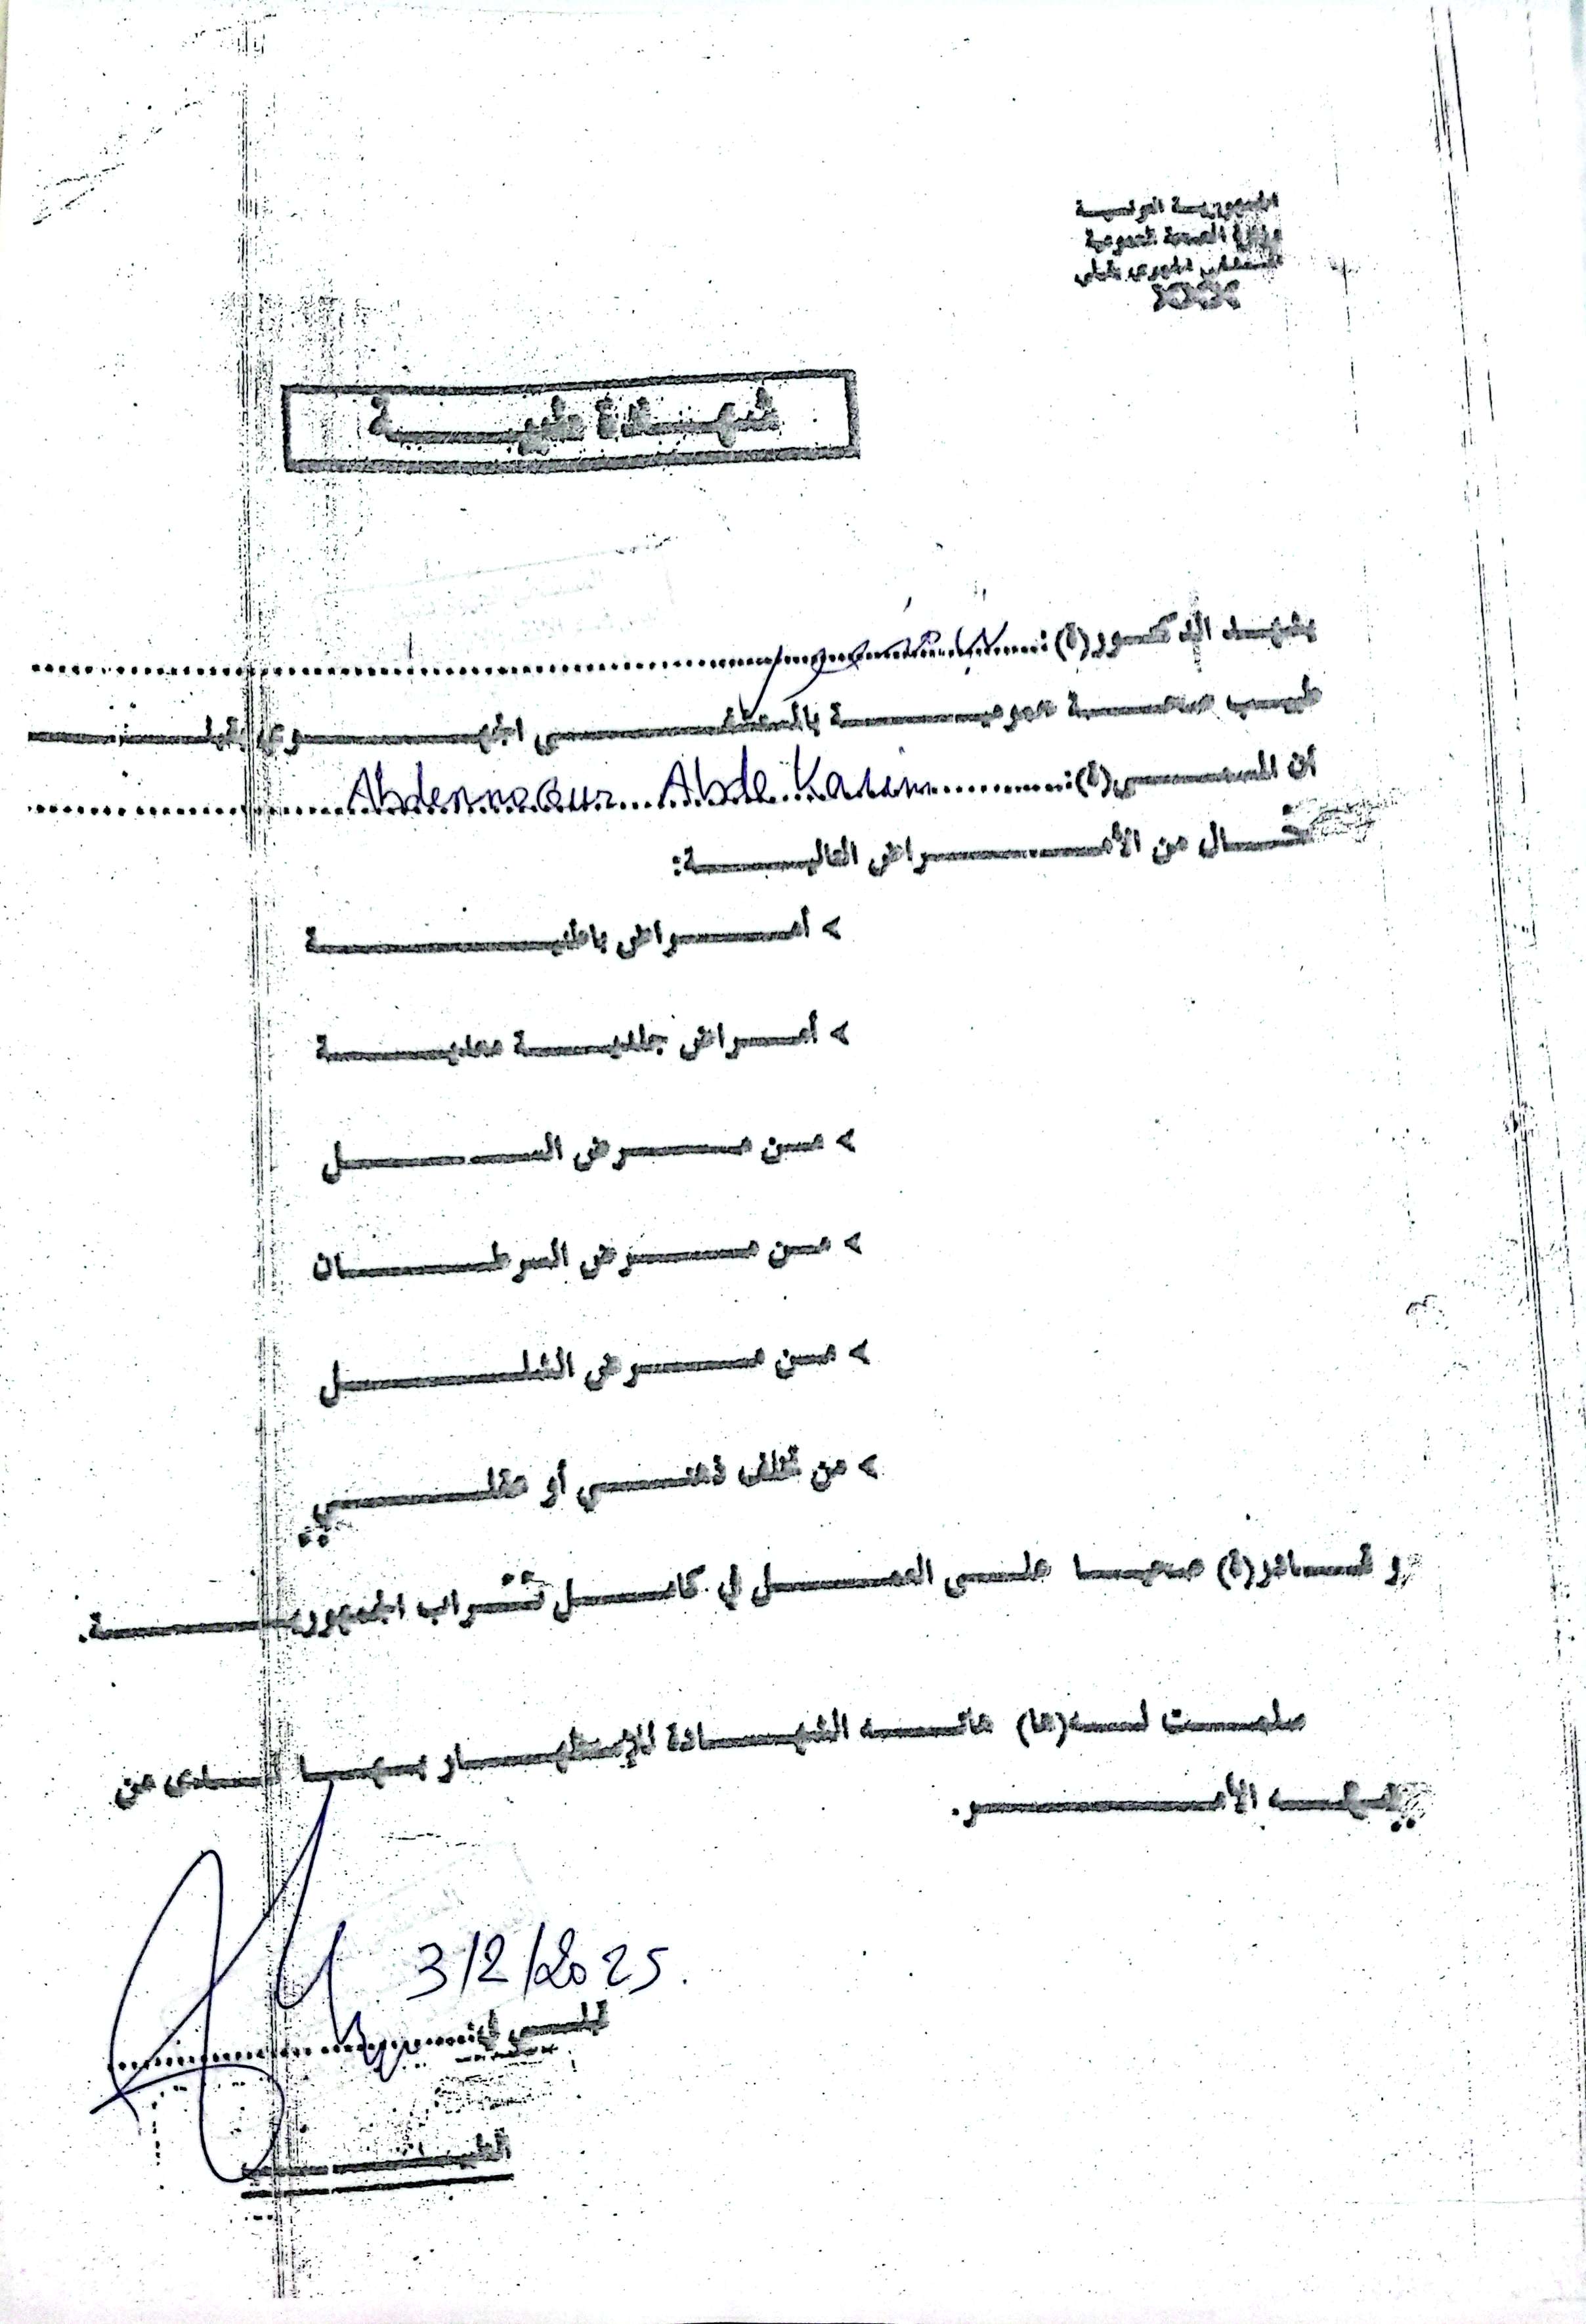 الجمهورية التونسية
وزارة الصحة العمومية
المستشفى الجهوي بقبلي
شهادة طبية
يشهد الدكتور(ة):
طبيب صحة عمومية بالمستشفى الجهوي بقبلي
أن المسمى(ة): Abdennaour Abde Karim
خال من الأمراض التالية:
> أمراض باطنية
> أمراض جلدية معدية
> من مرض السل
> من مرض السرطان
> من مرض الشلل
> من تخلف ذهني أو عقلي
و قادر(ة) صحيا على العمل في كامل تراب الجمهورية.
سلمت له(ها) هاته الشهادة للإستظهار بها لدى من
يهمه الأمر.
3/2/2025.
قبلي في:
الطبيب